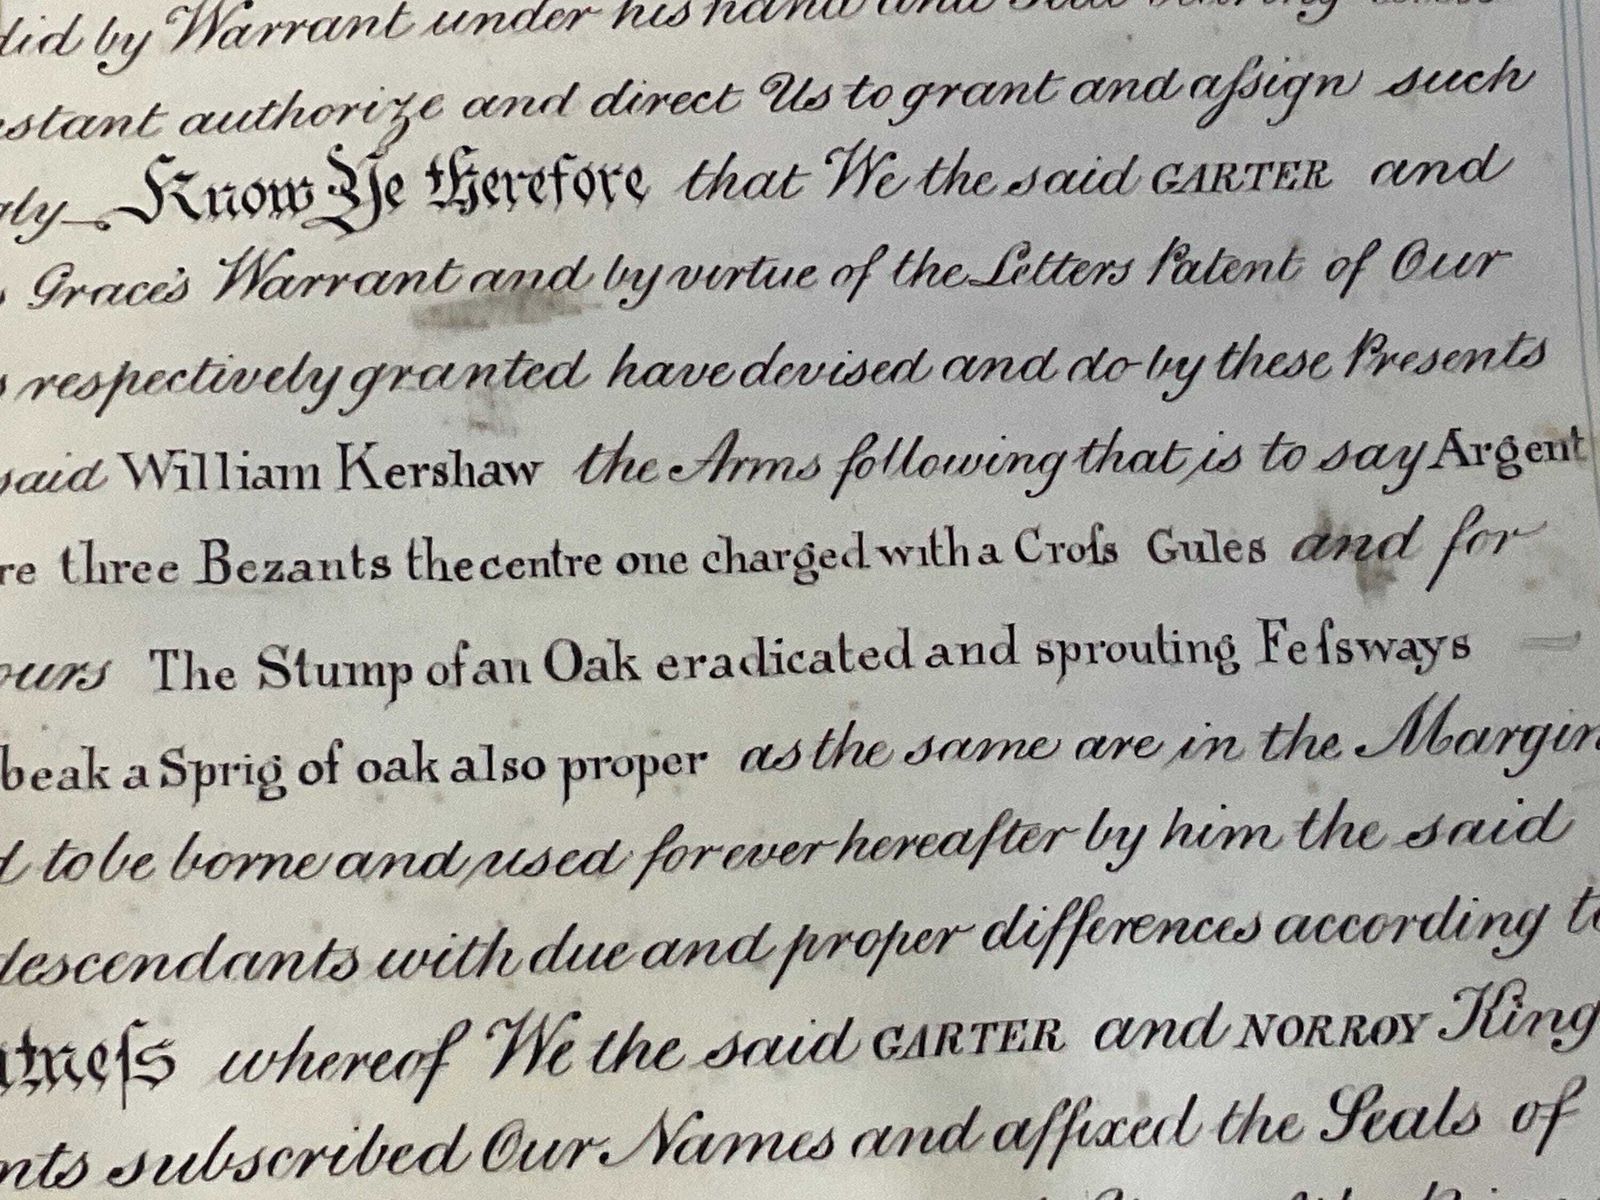 did by Warrant under his hand and Seal bearing
authorize and direct Us to grant and aſsign such
Know Ye therefore that We the said GARTER and
Grace's Warrant and by virtue of the Letters Patent of Our
respectively granted have devised and do by these Presents
said William Kershaw the Arms following that is to say Argent
three Bezants the centre one charged with a Croſs Gules and for
The Stump of an Oak eradicated and sprouting Feſsways
beak a Sprig of oak also proper as the same are in the Margin
to be borne and used for ever hereafter by him the said
descendants with due and proper differences according to
whereof We the said GARTER and NORROY King
subscribed Our Names and affixed the Seals of